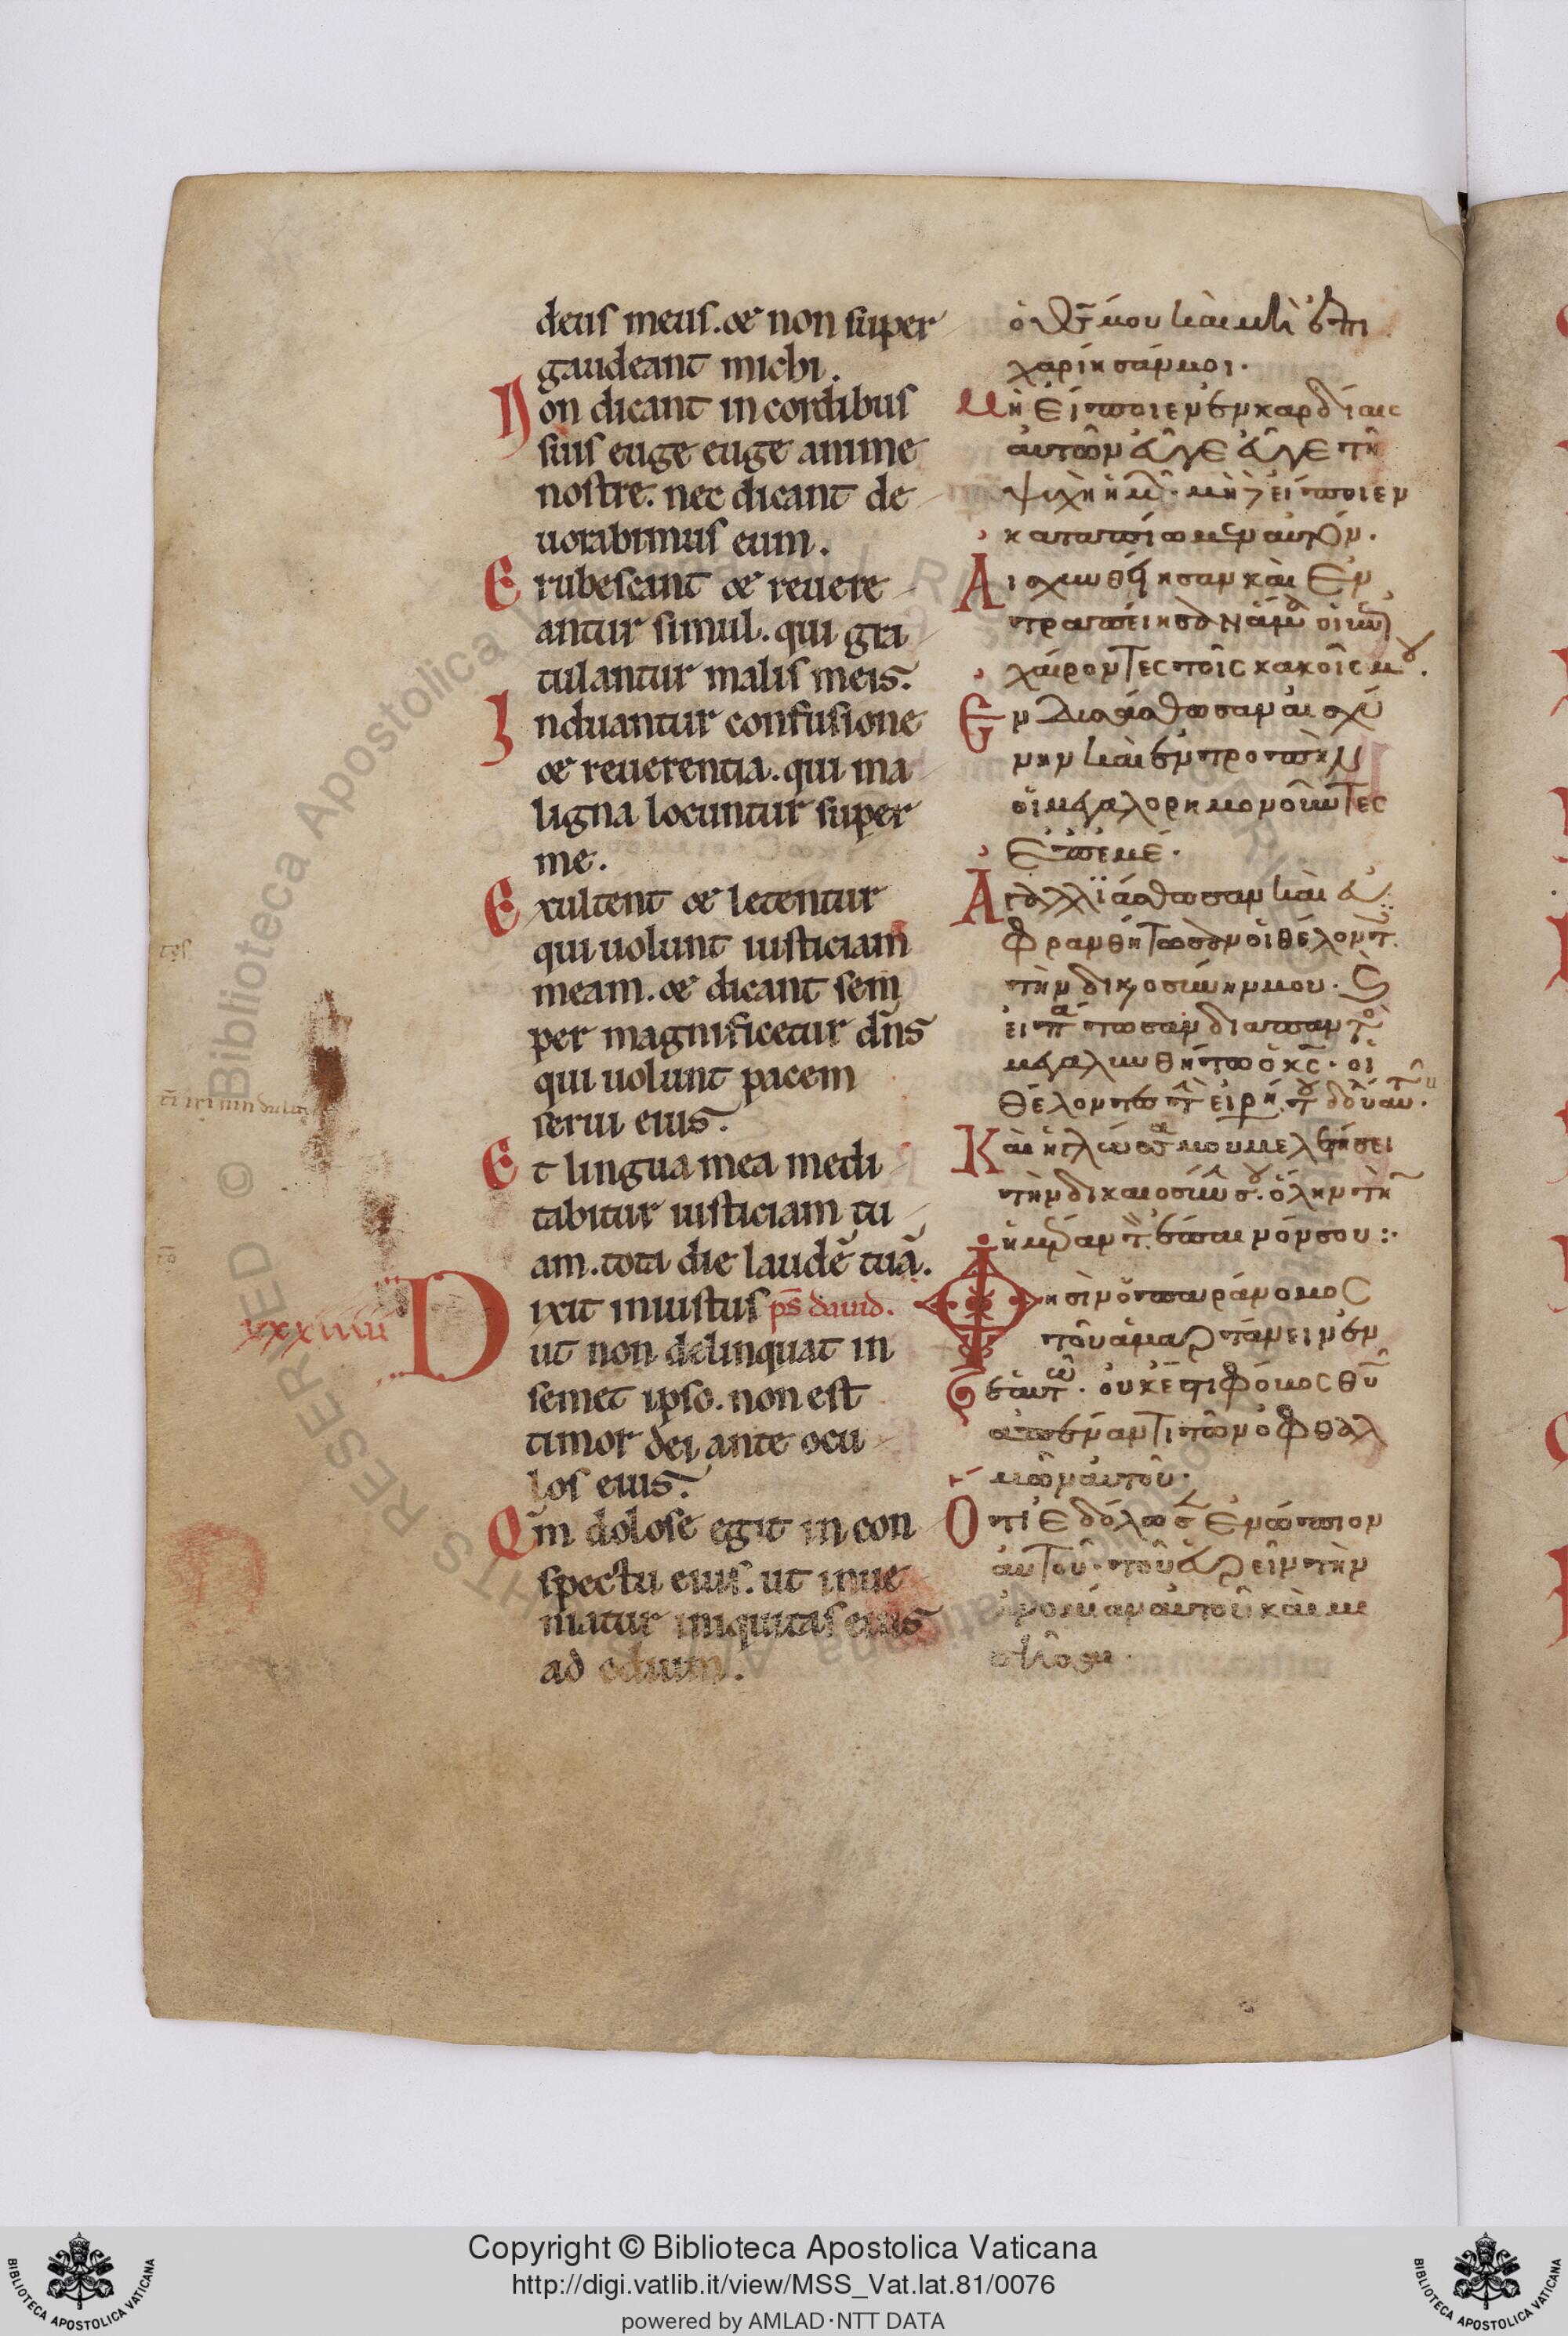 deus meus. & non super
gaudeant michi.
Non dicant in cordibus
suis euge euge anime
nostre. nec dicant de
uorabimus eum.
Erubescant & reuere
antur simul. qui gra
tulantur malis meis.
Induantur confusione
& reuerentia. qui ma
ligna locuntur super
me.
Exultent & letentur
qui uolunt iusticiam
meam. & dicant sem
per magnificetur dn̄s
qui uolunt pacem
serui eius.
Et lingua mea medi
tabitur iusticiam tu
am. tota die laudē tuā.
Dixit iniustus ps̄ dauid.
ut non delinquat in
semet ipso. non est
timor dei ante ocu
los eius.
Qm̄ dolose egit in con
spectu eius. ut inue
niatur iniquitas eius
ad odium.
ὁ θς̄ μου καὶ μὴ ἐπι
χαρίησάν μοι.
Μὴ εἴποιεν ἐν καρδίαις
αὐτῶν εὖγε εὖγε τῆ
ψυχὴ ἡμῶ. μὴδ εἴποιεν
καταπίωμεν αὐτόν.
Αἰσχυνθήησαν καὶ ἐν
χαίροντες τοῖς κακοῖς μου.
Ἐνδυσάσθωσαν αἰσχύ
νην καὶ ἐντροπὴν
οἱ μεγαλορημονοῦντες
ἐπ' ἐμέ.
Ἀγαλλϊάσθωσαν καὶ εὐ
φρανθήτωσαν οἱ θέλοντ
τὴν δικαιοσύνην μου.
μεγαλυνθήτω ὁ κς̄. οἱ
τὴν δικαιοσύν σου. ὅλην τὴ
ἡμέραν τ ἔπαινόν σου :·
Φησὶν ὁ παράνομος
τοῦ ἁμαρτάνειν ἐν
ἑαυτῶ. οὐκ ἔστι φόβος θῡ
ἀπέναντι τῶν ὀφθαλ
μῶν αὐτοῦ.
Ὅτι ἐδόλωσεν ἐνώπιον
αὐτοῦ. τοῦ εὑρεῖν τὴν
ἀνομίαν αὐτοῦ καὶ μι
σῆσαι.
xxxiiiii
Copyright © Biblioteca Apostolica Vaticana
http://digi.vatlib.it/view/MSS_Vat.lat.81/0076
powered by AMLAD·NTT DATA
BIBLIOTECA APOSTOLICA VATICANA
BIBLIOTECA APOSTOLICA VATICANA